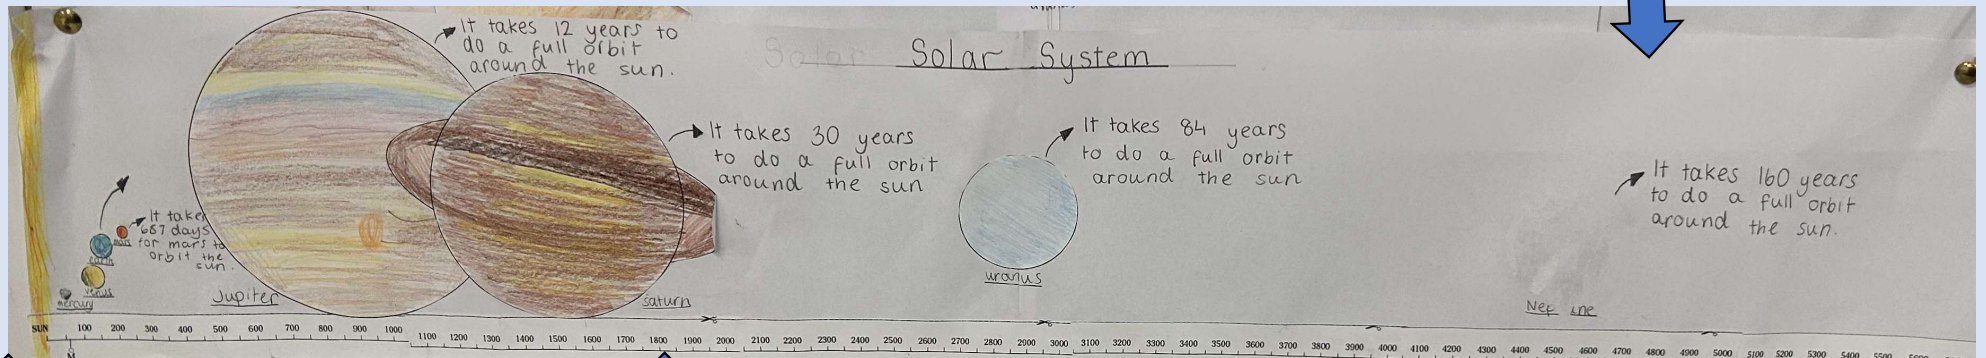 It takes 12 years to
do a full orbit
around the sun.
Solar
Solar System
It takes 30 years
to do a full orbit
around the sun
It takes 84 years
to do a full orbit
around the sun
It takes 160 years
to do a full orbit
around the sun.
It takes
687 days
for mars to
orbit the
sun.
mars
earth
venus
mercury
Jupiter
saturn
uranus
Nep une
SUN 100 200 300 400 500 600 700 800 900 1000 1100 1200 1300 1400 1500 1600 1700 1800 1900 2000 2100 2200 2300 2400 2500 2600 2700 2800 2900 3000 3100 3200 3300 3400 3500 3600 3700 3800 3900 4000 4100 4200 4300 4400 4500 4600 4700 4800 4900 5000 5100 5200 5300 5400 5500
M